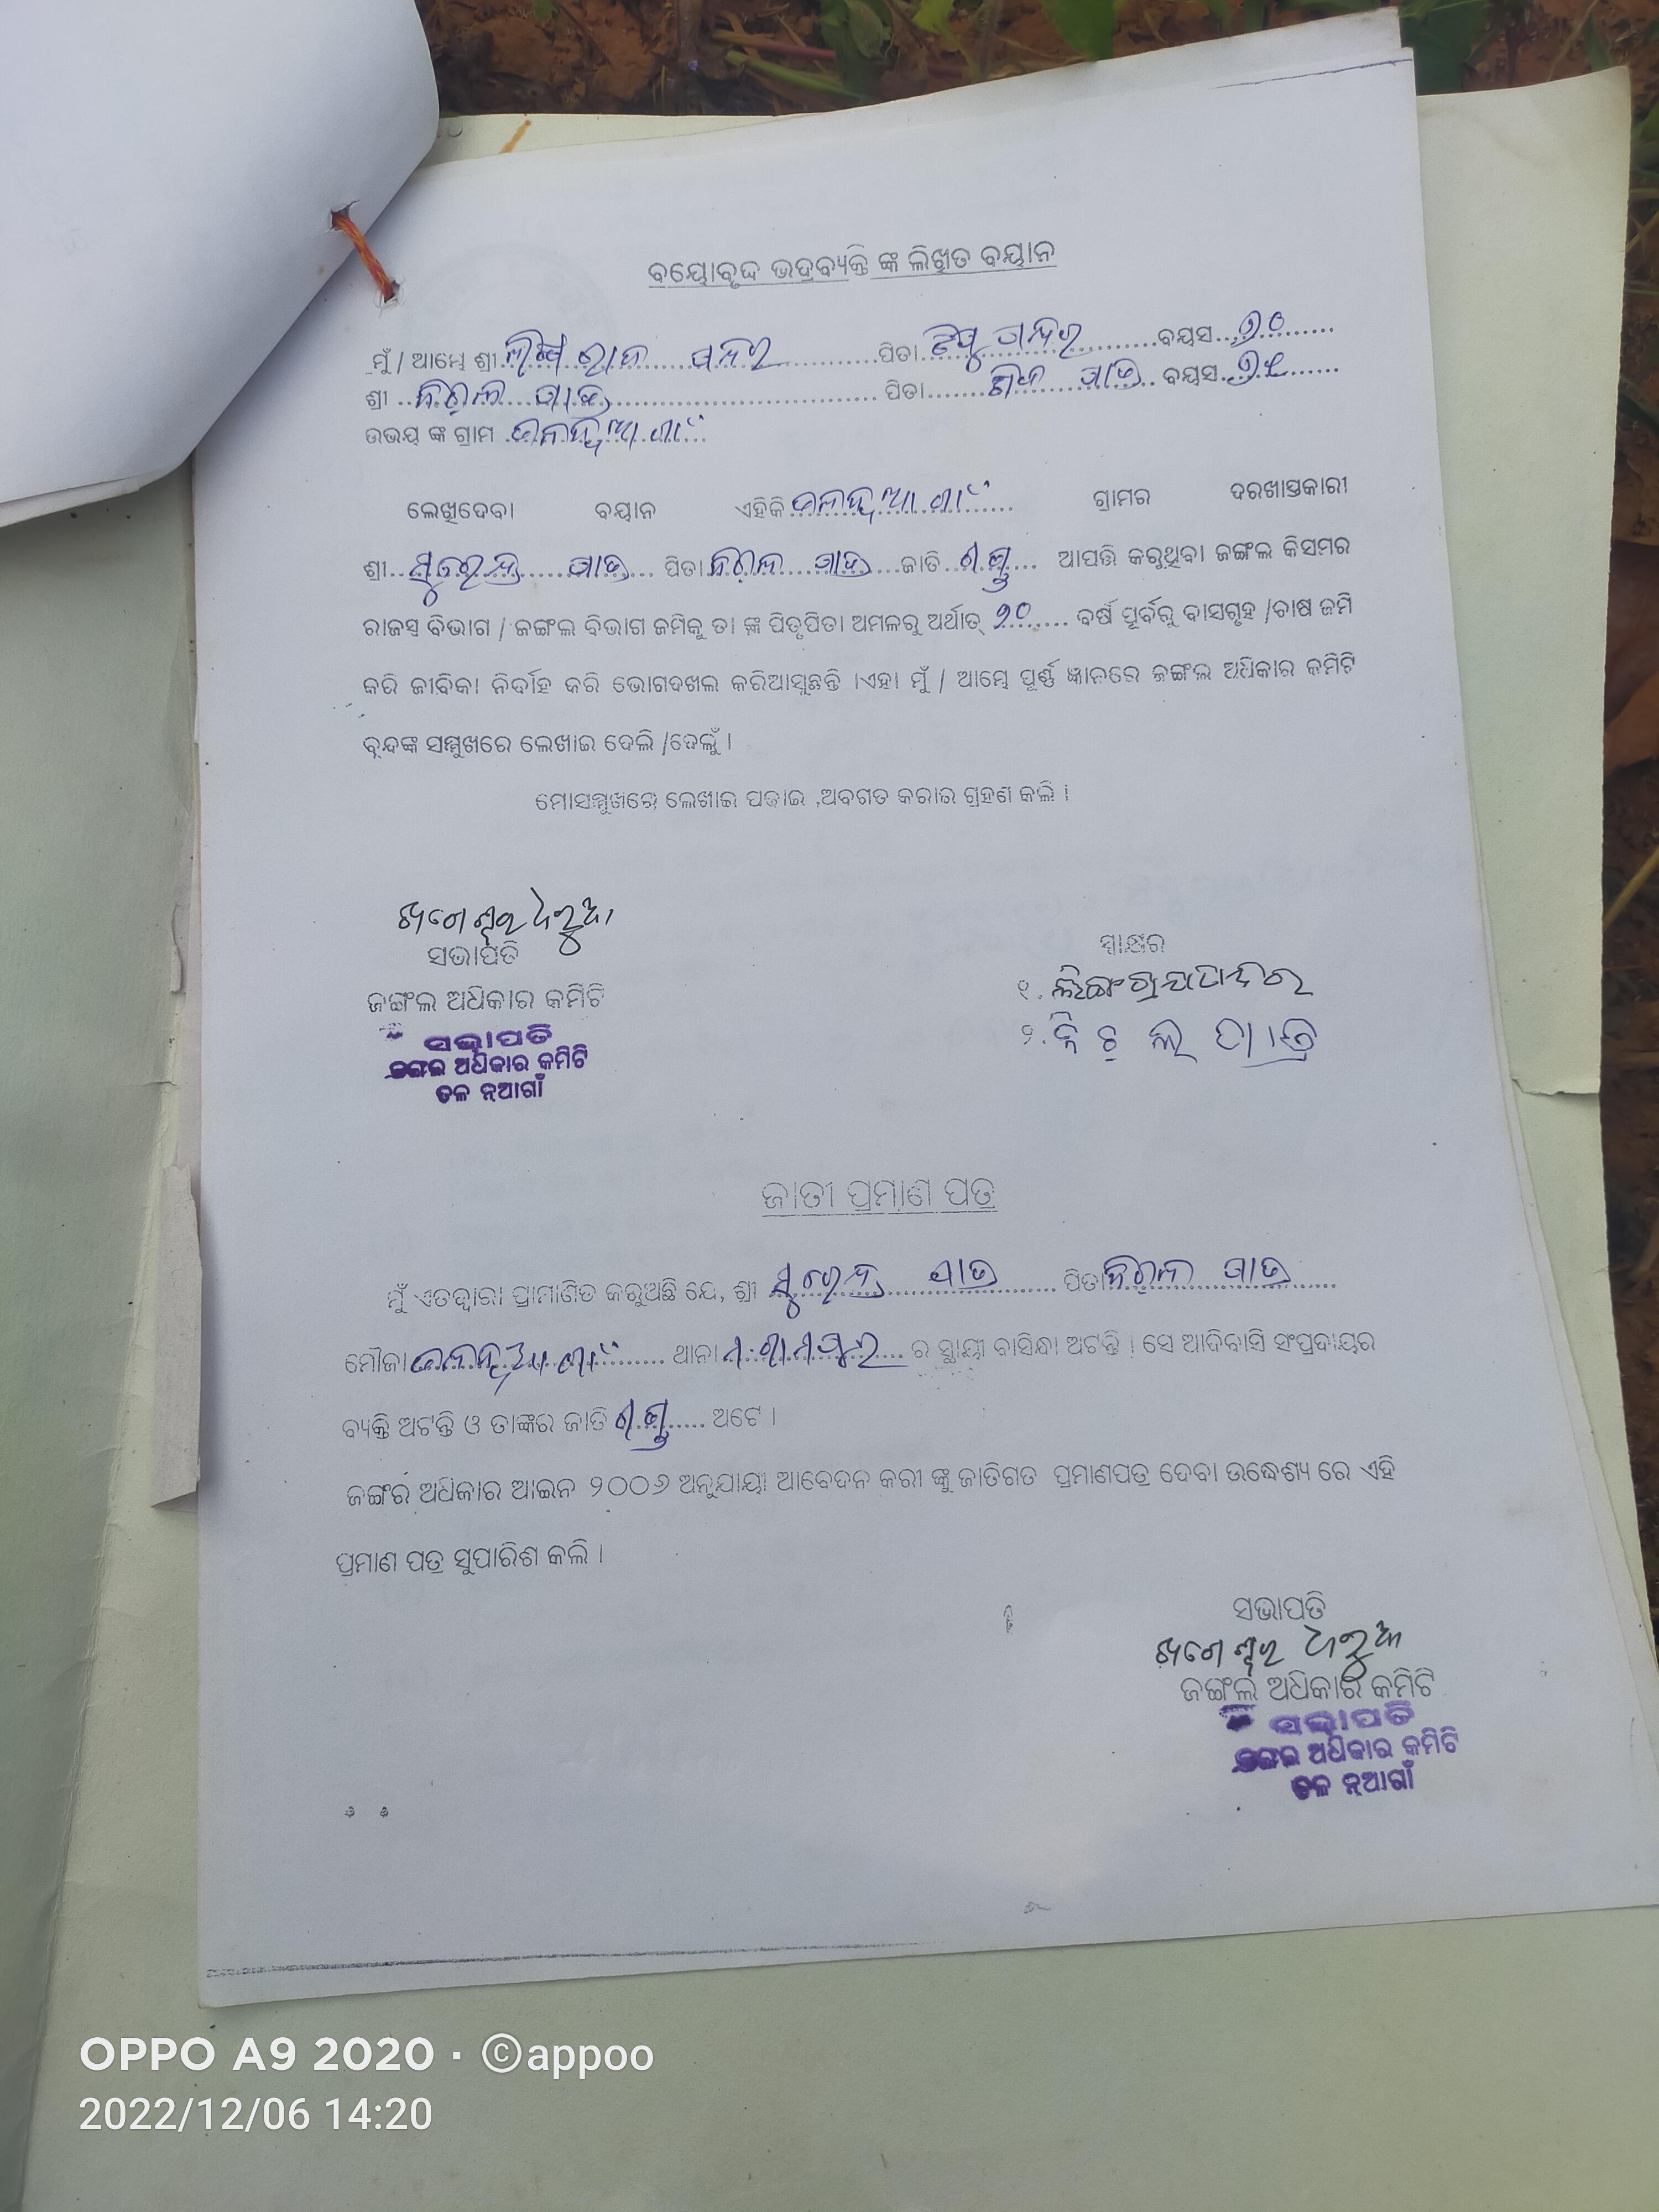 ବୟୋବୃଦ୍ଦ ଭଦ୍ରବ୍ୟକ୍ତି ଙ୍କ ଲିଖିତ ବୟାନ
ମୁଁ / ଆମ୍ଭେ ଶ୍ରୀ ପିତା ବୟସ ୭୦
ଶ୍ରୀ ପିତା ବୟସ
ଉଭୟ ଙ୍କ ଗ୍ରାମ ତଳନୂଆଗାଁ
ଲେଖିଦେବା ବୟାନ ଏହିକି ତଳନୂଆଗାଁ ଗ୍ରାମର ଦରଖାସ୍ତକାରୀ
ଶ୍ରୀ ସୁରେନ୍ଦ୍ର ପାତ୍ର ପିତା ପାତ୍ର ଜାତି ଗଣ୍ଡ ଆପତ୍ତି କରୁଥିବା ଜଙ୍ଗଲ କିସମର
ରାଜସ୍ବ ବିଭାଗ / ଜଙ୍ଗଲ ବିଭାଗ ଜମିକୁ ତା ଙ୍କ ପିତୃପିତା ଅମଳରୁ ଅର୍ଥାତ୍ ବର୍ଷ ପୂର୍ବରୁ ବାସଗୃହ /ଚାଷ ଜମି
କରି ଜୀବିକା ନିର୍ବାହ କରି ଭୋଗଦଖଲ କରିଆସୁଛନ୍ତି ।ଏହା ମୁଁ / ଆମ୍ଭେ ପୂର୍ଣ୍ଣ ଜ୍ଞାନରେ ଜଙ୍ଗଲ ଅଧିକାର କମିଟି
ବୃନ୍ଦଙ୍କ ସମ୍ମୁଖରେ ଲେଖାଇ ଦେଲି /ଦେଲୁଁ ।
ମୋସମ୍ମୁଖରେ ଲେଖାଇ ପଢାଇ ,ଅବଗତ କରାଇ ଗ୍ରହଣ କଲି ।
ଖଗେଶ୍ୱର ଧରୁଆ
ସଭାପତି
ସ୍ୱାକ୍ଷର
ଜଙ୍ଗଲ ଅଧିକାର କମିଟି
୧.
୨. ପାତ୍ର
ସଭାପତି
ଜଙ୍ଗଲ ଅଧିକାର କମିଟି
ତଳ ନୂଆଗାଁ
ଜାତୀ ପ୍ରମାଣ ପତ୍ର
ମୁଁ ଏତଦ୍ୱାରା ପ୍ରାମାଣିତ କରୁଅଛି ଯେ, ଶ୍ରୀ ସୁରେନ୍ଦ୍ର ପାତ୍ର ପିତା ପାତ୍ର
ମୌଜା ତଳନୂଆଗାଁ ଥାନା ର ସ୍ଥାୟୀ ବାସିନ୍ଧା ଅଟନ୍ତି । ସେ ଆଦିବାସି ସଂପ୍ରଦାୟର
ବ୍ୟକ୍ତି ଅଟନ୍ତି ଓ ତାଙ୍କର ଜାତି ଗଣ୍ଡ ଅଟେ ।
ଜଙ୍ଗର ଅଧିକାର ଆଇନ ୨୦୦୬ ଅନୁଯାୟୀ ଆବେଦନ କରୀ ଙ୍କୁ ଜାତିଗତ ପ୍ରମାଣପତ୍ର ଦେବା ଉଦ୍ଧେଶ୍ୟ ରେ ଏହି
ପ୍ରମାଣ ପତ୍ର ସୁପାରିଶ କଲି ।
ସଭାପତି
ଖଗେଶ୍ୱର ଧରୁଆ
ଜଙ୍ଗଲ ଅଧିକାର କମିଟି
ସଭାପତି
ଜଙ୍ଗଲ ଅଧିକାର କମିଟି
ତଳ ନୂଆଗାଁ
OPPO A9 2020 · ©appoo
2022/12/06 14:20